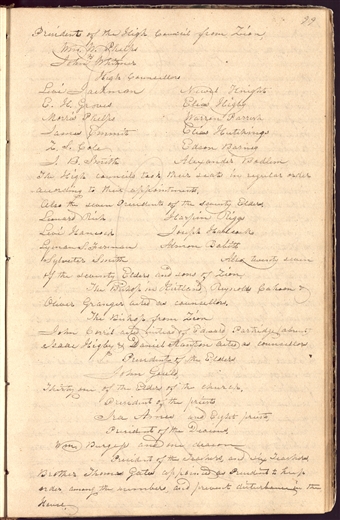 99
President of the High Council from Zion,
Wm. W. Phelps
John Whitmer
High Councellors
Levi Jackman Newel Knight
C. H. Groves Elias Higby
Morris Phelps Warren Parrish
James Emmit Elias Hutchings
Z. S. Cole Edson Barney
J. B. Smith Alexander Badlam
The High councils took their seats in regular order
according to their appointment.
Also the seven Presidents of the seventy Elders
Leonard Rich Harpin Riggs
Levi Hancock Joseph Hancock
Lyman Sherman Almon Babitt
Sylvester Smith Also twenty seven
of the seventy Elders and sons of Zion,
The Bishop in Kirtland, Reynolds Cahoon &
Oliver Granger acted as councellors.
The Bishop from Zion
John Corril acted instead of Edward Partridge, absent
Isaac Higby & Daniel Stanton acted as councellors
Presidents of the Elders
John Gould
Thirty one of the Elders of the church,
President of the priests
Ira Ames and Eight priests,
President of the Deacons
Wm. Burgess and one deacon
President of the Teachers and six Teachers
Brother Thomas Gates appointed as President to keep
order among the number, and prevent disturbance in the
House,